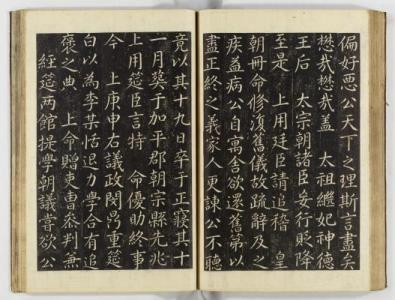 偏好惡公天下之理斯言盡矣
懋哉懋哉蓋 太祖繼妃神德
王后 太宗朝諸臣妄行貶降
至是 上用廷臣請追稽 皇
朝冊命修復舊儀故疏辭及之
疾益病公自寓舍欲還舊第以
盡正終之義家人更諫公不聽
竟以其十九日卒于正寢其十
一月葬于加平郡朝宗縣元兆
上用筵臣言特 命優助終事
今 上庚申右議政閔鼎重筵
白以為李某恬退力學合有追
褒之典 上命贈吏曹參判兼
經筵兩館提學朝議嘗欲公